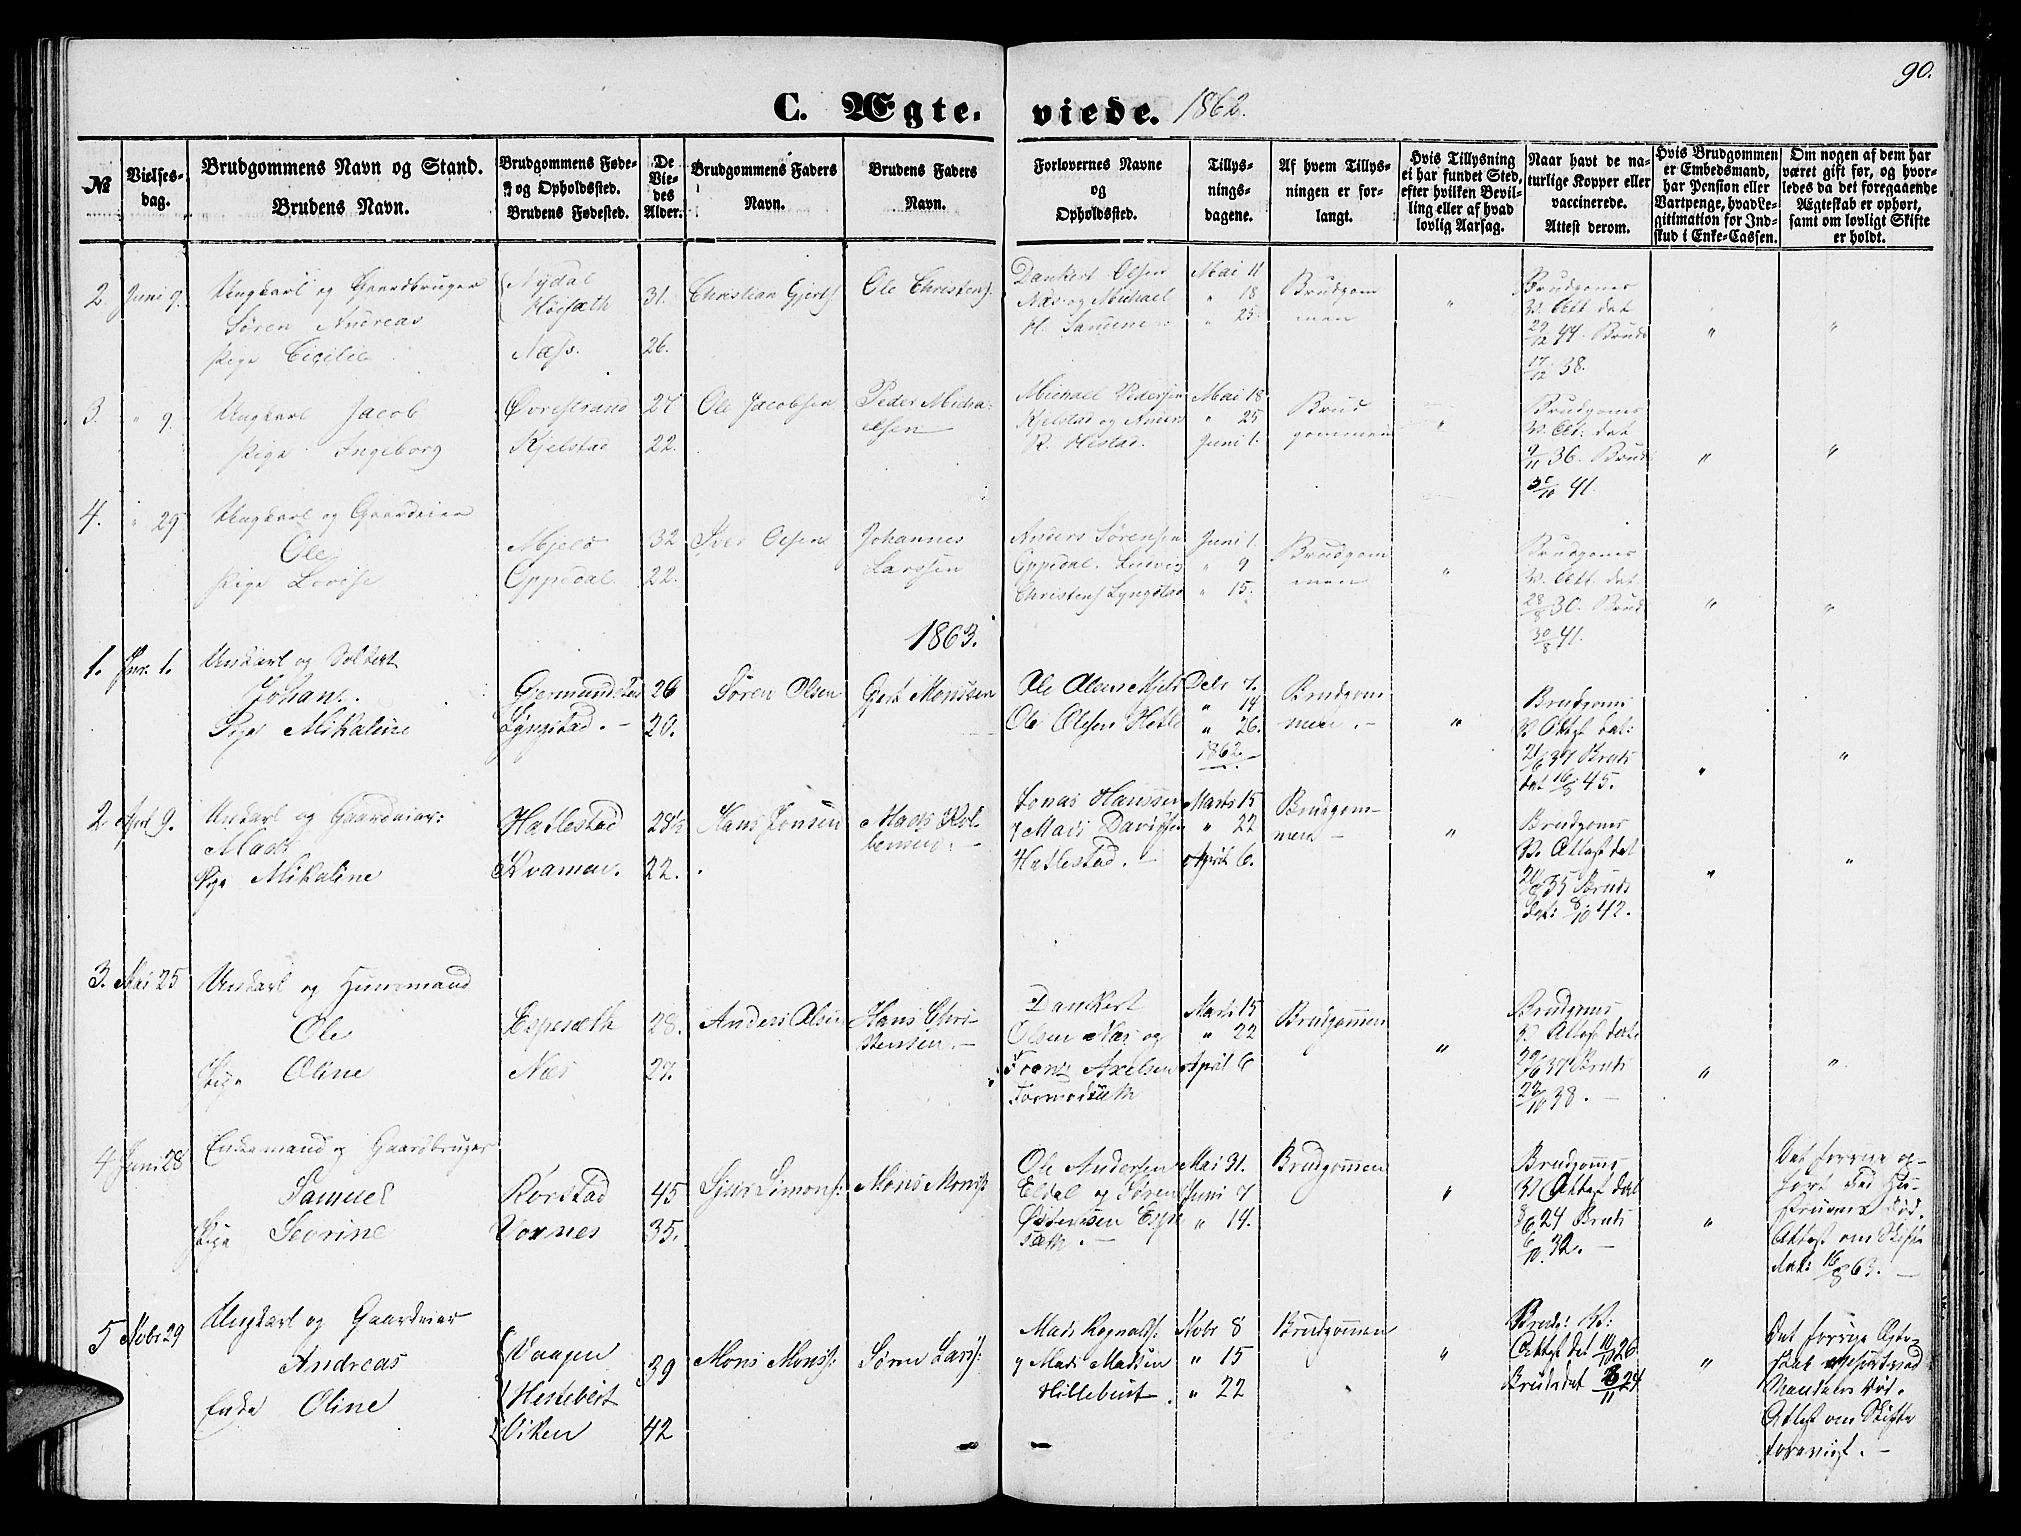 90.
C. Ægte- viede. 1862.
№
Vielses-
dag.
Brudgommens Navn og Stand.
Brudens Navn.
Brudgommens Føde-
og Opholdssted.
Brudens Fødested.
De
Vie-
des
Alder.
Brudgommens Faders
Navn.
Brudens Faders
Navn.
Forlovernes Navne
og
Opholdssted.
Tillys-
nings-
dagene.
Af hvem Tillys-
ningen er for-
langt.
Hvis Tillysning
ei har fundet Sted,
efter hvilken Bevil-
ling eller af hvad
lovlig Aarsag.
Naar havt de na-
turlige Kopper eller
vaccinerede.
Attest derom.
Hvis Brudgommen
er Embedsmand,
har Pension eller
Vartpenge, hvad Le-
gitimation for Ind-
skud i Enke-Cassen.
Om nogen af dem har
været gift før, og hvor-
ledes da det foregaaende
Ægteskab er ophørt,
samt om lovligt Skifte
er holdt.
2. Juni 9. Ungkarl og Gaardbruger
Søren Andreas
Pige Cicilie
Nydal
Høisæth
Næss.
31.
26.
Christian Gjerts
Ole Christens.
Dankert Olsen
Næs og Michael
H. Samene
Mai 11
" 18
" 25.
Brudgom
men
"
Brudgoms
V. Att dat
29/12 44. Bruds
17/12 38.
"
"
3. " 9. Ungkarl Jacob
Pige Ingeborg
Øvrestrand
Kjelstad
27
22.
Ole Jacobsen
Peder Micha-
elsen
Michael Pedersen
Kjelstad og Anders
R. Hestad.
Mai 18
" 25
Juni 1.
Brud
gommen
"
Brudgoms
V. Att: dat
9/11 36. Bruds
/10 41.
"
"
4. " 29 Ungkarl og Gaardeier
Ole
Pige Lovise
Mjels
Oppedal.
32
22.
Iver Olsen
Johannes
Larssen
Anders Sørensen
Oppedal. Ludvig
Christens Lyngstad
Juni 1.
" 9
" 15.
Brudgom
men
"
Brudgoms
V. Att. dat
28/8 30. Bruds
30/8 41.
"
"
1863.
1. Jnr. 1. Unkarl og Soldat
Johan.
Pige Mikaline
Gjermundstad
Lyngstad. -
26
20.
Søren Olsen
Gjert Monssen
Ole Olsen Mjels
Ole Olsen Hatle
Debr 7.
" 14
" 26.
1862.
Brudgom
men. -
"
Brudgoms
V. Attest dat:
21/6 37 Bruds
dat 16/8 45.
"
"
2 April 9. Unkarl og Gaardeier:
Mads
Pige Mikaline
Hatlestad
Kvamen.
28½
22.
Hans Jonsen
Mads Kol-
bensen. -
Jonas Hanssen
og Mads Davidsen
Hatlestad. -
Marts 15
" 22
April 6.
Brudgom-
men -
"
Brudgoms
V. Attest dat
35 Bruds
dat: 8/10 42.
"
"
3. Mai 25 Unkarl og Huusmand
Ole
Pige Oline
Espesæth
Næs
28.
27.
Anders Olsen
Hans Chri-
stensen. -
Dankert
Olsen Næs og
Frans Axelsen
Tormodsæth
Marts 15
" 22
April 6
Brudgommen
"
Brudgoms
V Attest dat
37 Bruds
22/10 38. -
"
"
4 Juni 28 Enkemand og Gaardbruger
Samuel
Pige Sevrine
Rørstad
Voxnes
45
35.
Sjur Simons:
Mons Monss
Ole Andersen
Eldal og Søren
Østensen Espe
sæth. -
Mai 31.
Juni 7
" 14.
Brudgommen
"
Brudgoms
V Attest dat
8/6 24 Bruds
6/10. 32. -
"
Det forrige op-
hørt ved Hu-
struens Død.
Attest om Skifte
dat: 16/6 63. -
5 Nobr 29 Ungkarl og Gaardeier
Andreas
Enke Oline
Vaagen
Hestebeit
Viken
39
42
Mons Monss:
Søren Larss:
Mads Rognalds:
og Mads Madsen
Hillebust.
Nobr 8
" 15
" 22
Brudgommen
"
Bruds: V:
Attest dat 11/10 26
Bruds dat /11 24
"
Det forrige Ægte-
skab ophørt ved
Mandens Død.
Attest om Skifte
forevist. -